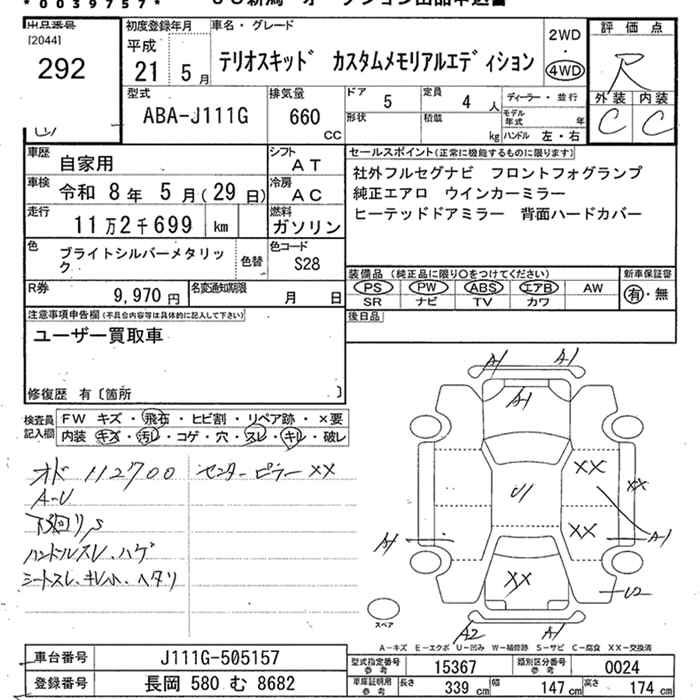 *0039757*
出品番号
[2044]
292
初度登録年月
平成
21年 5月
車名・グレード
テリオスキッド カスタムメモリアルエディション
2WD
・
4WD
評価点
R
外装 内装
C C
型式
ABA-J111G
排気量
660
CC
ドア 5
定員 4 人
形状
積載 kg
ディーラー・並行
モデル年式 年
ハンドル 左・右
車歴
自家用
シフト
AT
車検
令和 8年 5月(29日)
冷房
AC
走行
11万2千699 km
燃料
ガソリン
色
ブライトシルバーメタリック
色替
色コード
S28
R券
9,970円
名変通知期限
月 日
セールスポイント(正常に機能するものに限ります)
社外フルセグナビ フロントフォグランプ
純正エアロ ウインカーミラー
ヒーテッドドアミラー 背面ハードカバー
装備品(純正品に限り○をつけてください)
PS PW ABS エアB AW
SR ナビ TV カワ
新車保証書
有・無
後日品
注意事項申告欄(不具合内容等は具体的に記入して下さい)
ユーザー買取車
修復歴 有〔箇所 〕
検査員
記入欄
FW キズ・飛石・ヒビ割・リペア跡・×要
内装 キズ・汚レ・コゲ・穴・スレ・キレ・破レ
オド 112700
センターピラー XX
A-U
下回りS
ハンドルスレ、ハゲ
シートスレ、キレ小、ヘタリ
A1 A1
A1
XX
XX
U1
XX
A1
A1
XX
U2
A2 A1
スペア
A-キズ E-エクボ U-凹み W-補修跡 S-サビ C-腐食 XX-交換済
車台番号
J111G-505157
登録番号
長岡 580 む 8682
型式指定番号
参考
15367
類別区分番号
参考
0024
車庫証明用
参考
長さ 339 cm
幅 147 cm
高さ 174 cm